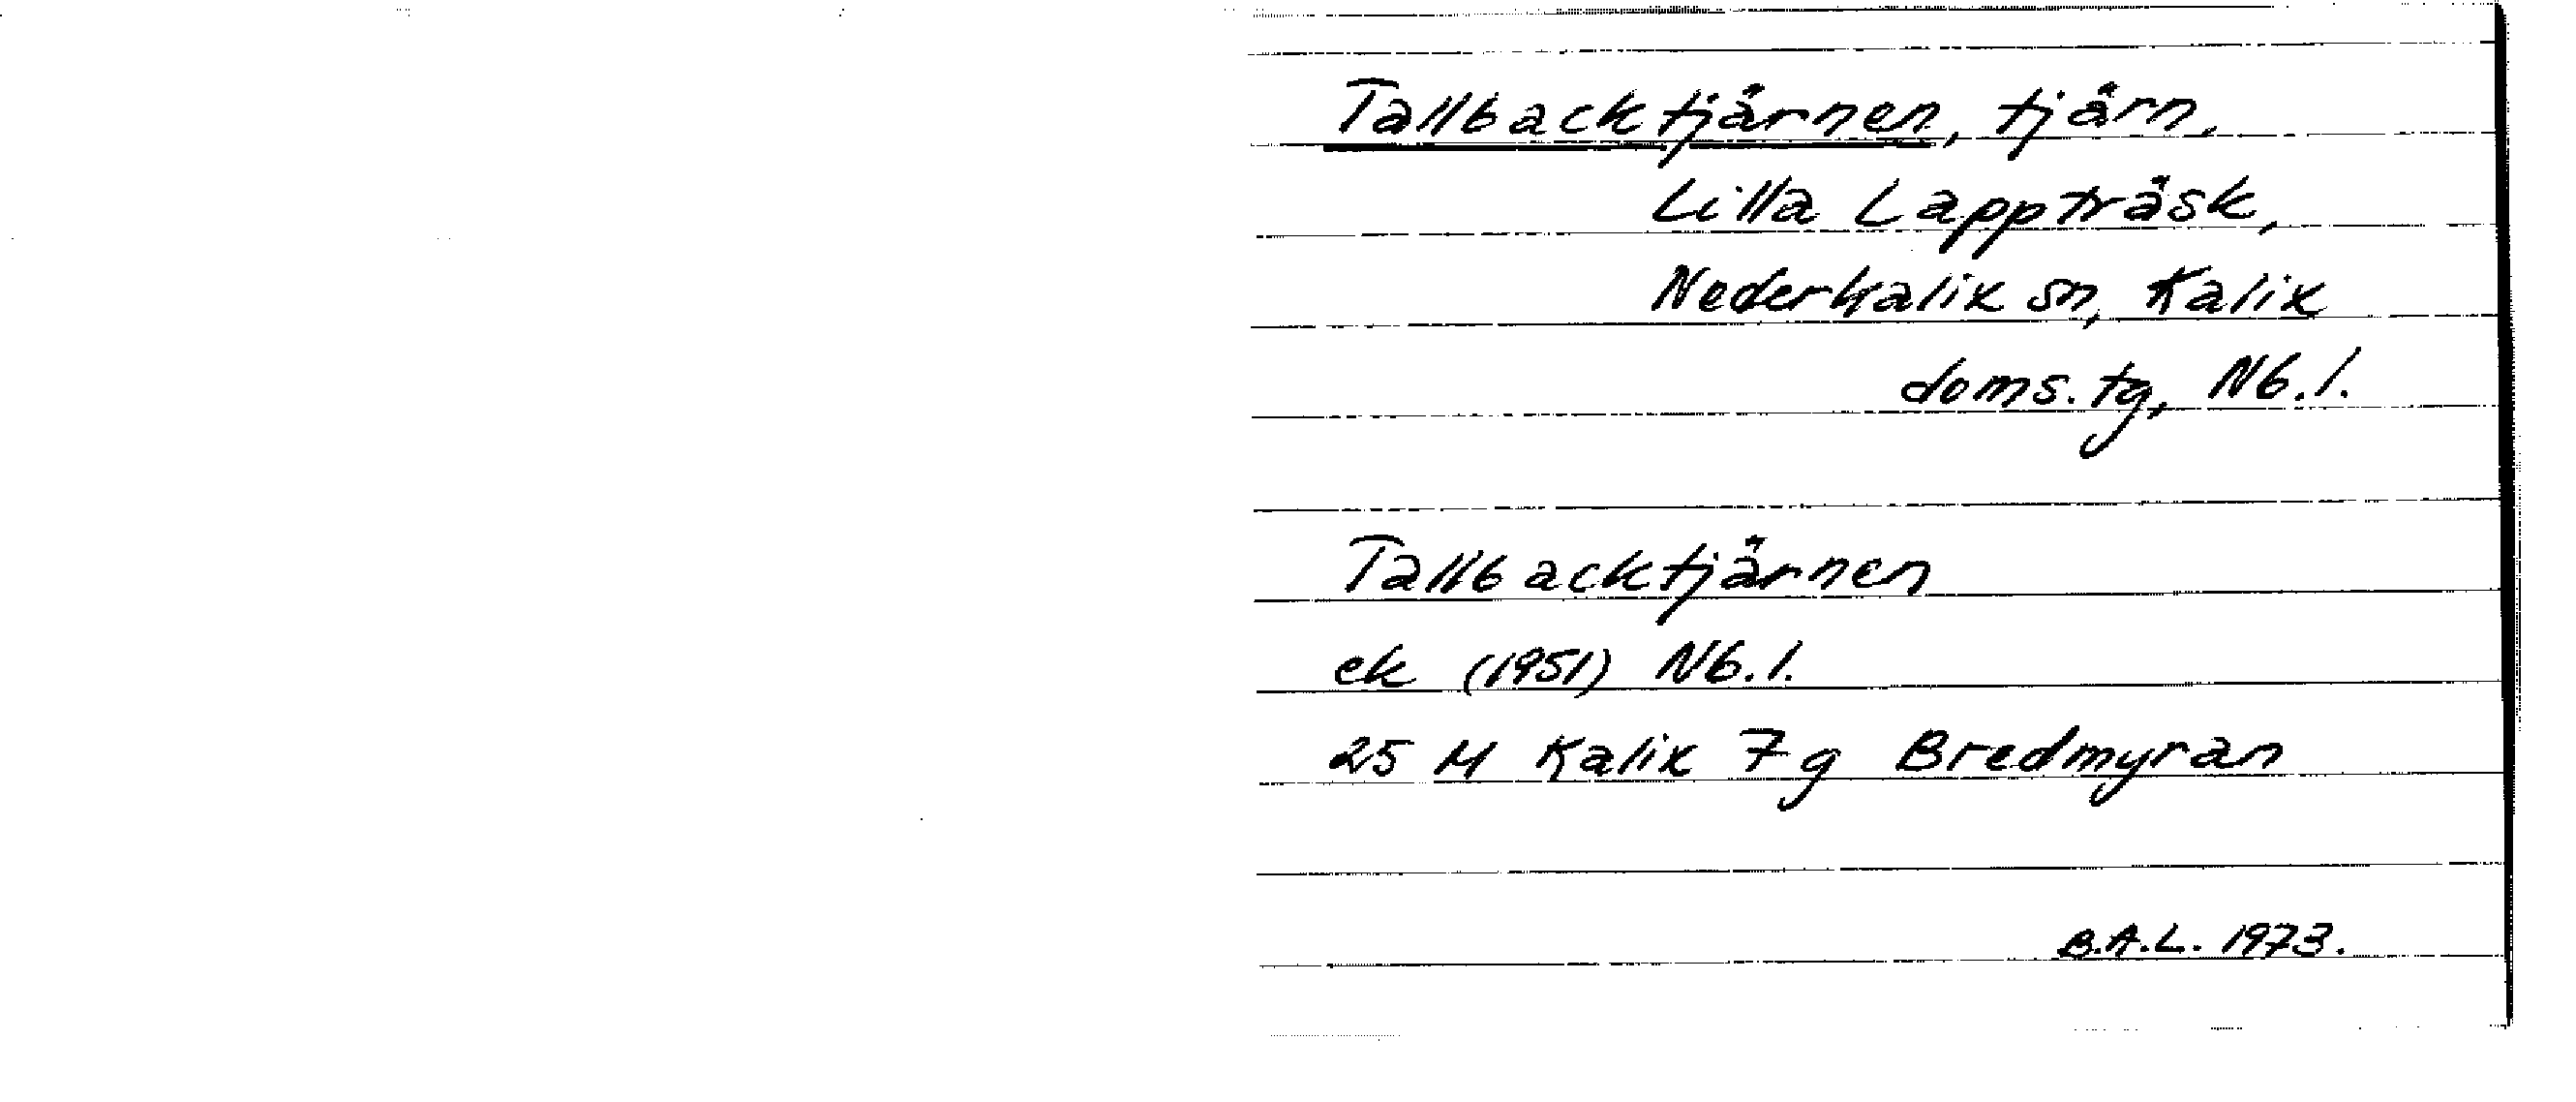 Tallbacktjärnen, tjärn,
Lilla Lappträsk,
Nederkalix sn, Kalix
doms.tg, Nb.l.
Tallbacktjärnen
ek (1951) Nb.l.
25 M Kalix 7g Bredmyran
B.A.L. 1973.